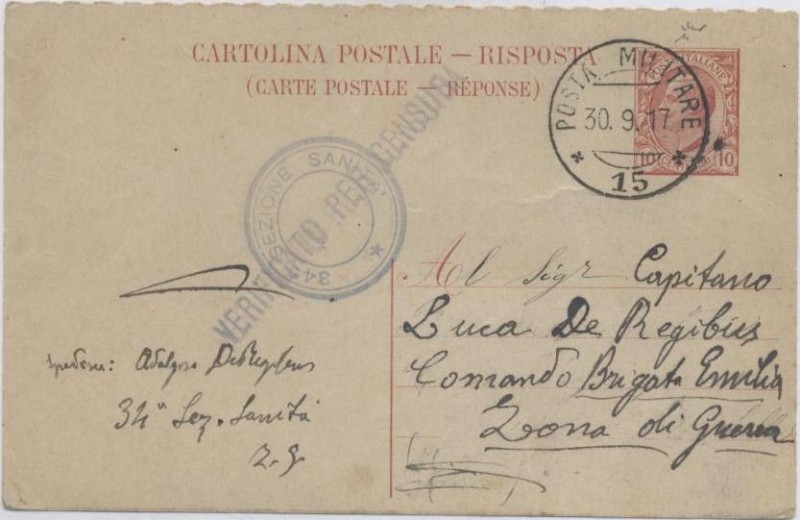 CARTOLINA POSTALE — RISPOSTA
(CARTE POSTALE — RÉPONSE)
POSTE ITALIANE
10 10
POSTA MILITARE
30.9.17
15
34ª SEZIONE SANITÀ
VERIFICATO PER CENSURA
Al Sigr Capitano
Luca De Regibus
Comando Brigata Emilia
Zona di Guerra
34ª Sez. Sanità
Z. G